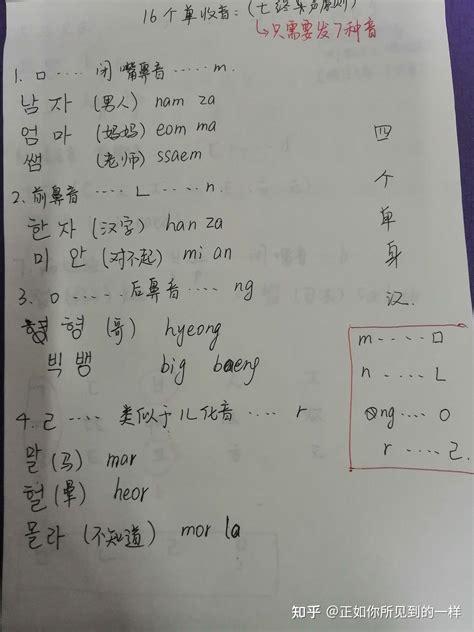 16个单收音:(七终声原则)
↳只需要发7种音
1. ㅁ···· 闭嘴鼻音 ····· m.
남 자 (男人) nam za
엄 마 (妈妈) eom ma
쌤 (老师) ssaem
2. 前鼻音 ···· ㄴ ···· n.
한 자 (汉字) han za
미 안 (对不起) mi an
3. ㅇ ····· 后鼻音 ···· ng
형 (哥) hyeong
빅 뱅 big baeng
4. ㄹ ···· 类似于儿化音 ···· r
말 (马) mar
헐 (晕) heor
몰 라 (不知道) mor la
四个单身汉.
m ···· ㅁ
n ···· ㄴ
ng ···· ㅇ
r ···· ㄹ.
知乎 @正如你所见到的一样